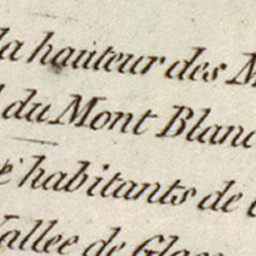 la hauteur des M
du Mont Blanc
habitants de
allee de Glac